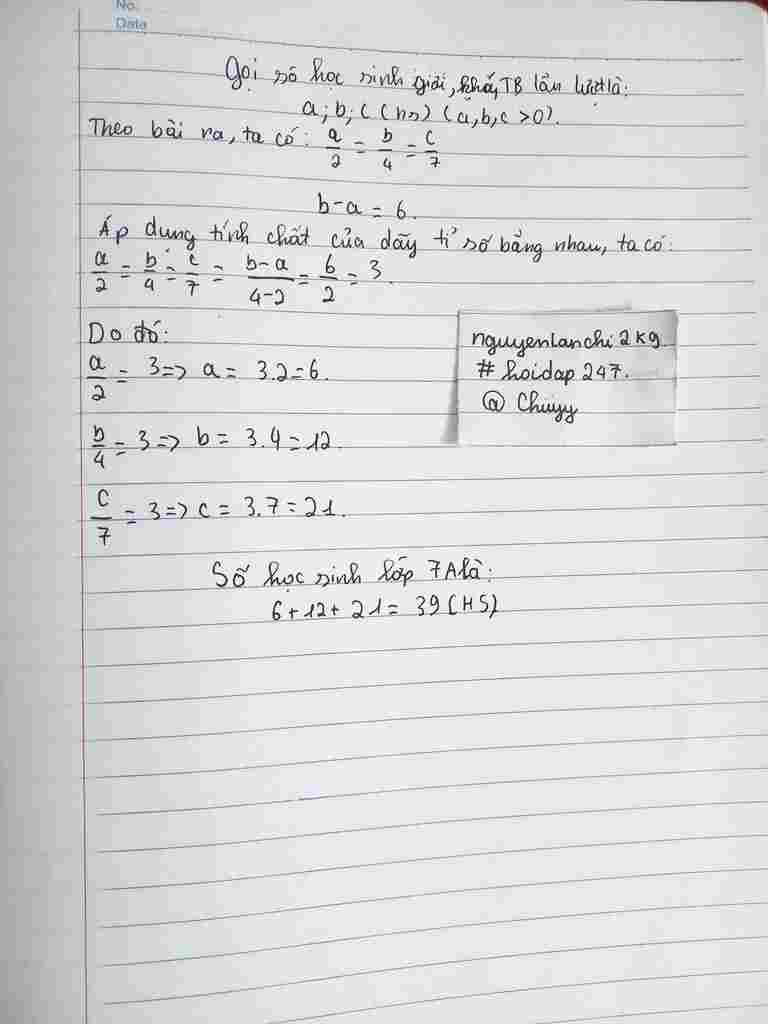 No.
Date
Gọi số học sinh giỏi, khá, TB lần lượt là:
a; b; c (hs) (a,b,c >0).
Theo bài ra, ta có: a/2 = b/4 = c/7
b-a = 6.
Áp dụng tính chất của dãy tỉ số bằng nhau, ta có:
a/2 = b/4 = c/7 = b-a/4-2 = 6/2 = 3
Do đó:
a/2 = 3 => a = 3.2=6.
b/4 = 3 => b = 3.4 = 12.
c/7 = 3 => c = 3.7 = 21.
Số học sinh lớp 7A là:
6+12+21= 39 (HS)
nguyenlanchi2kg
# hoidap 247.
@ Chiuyy